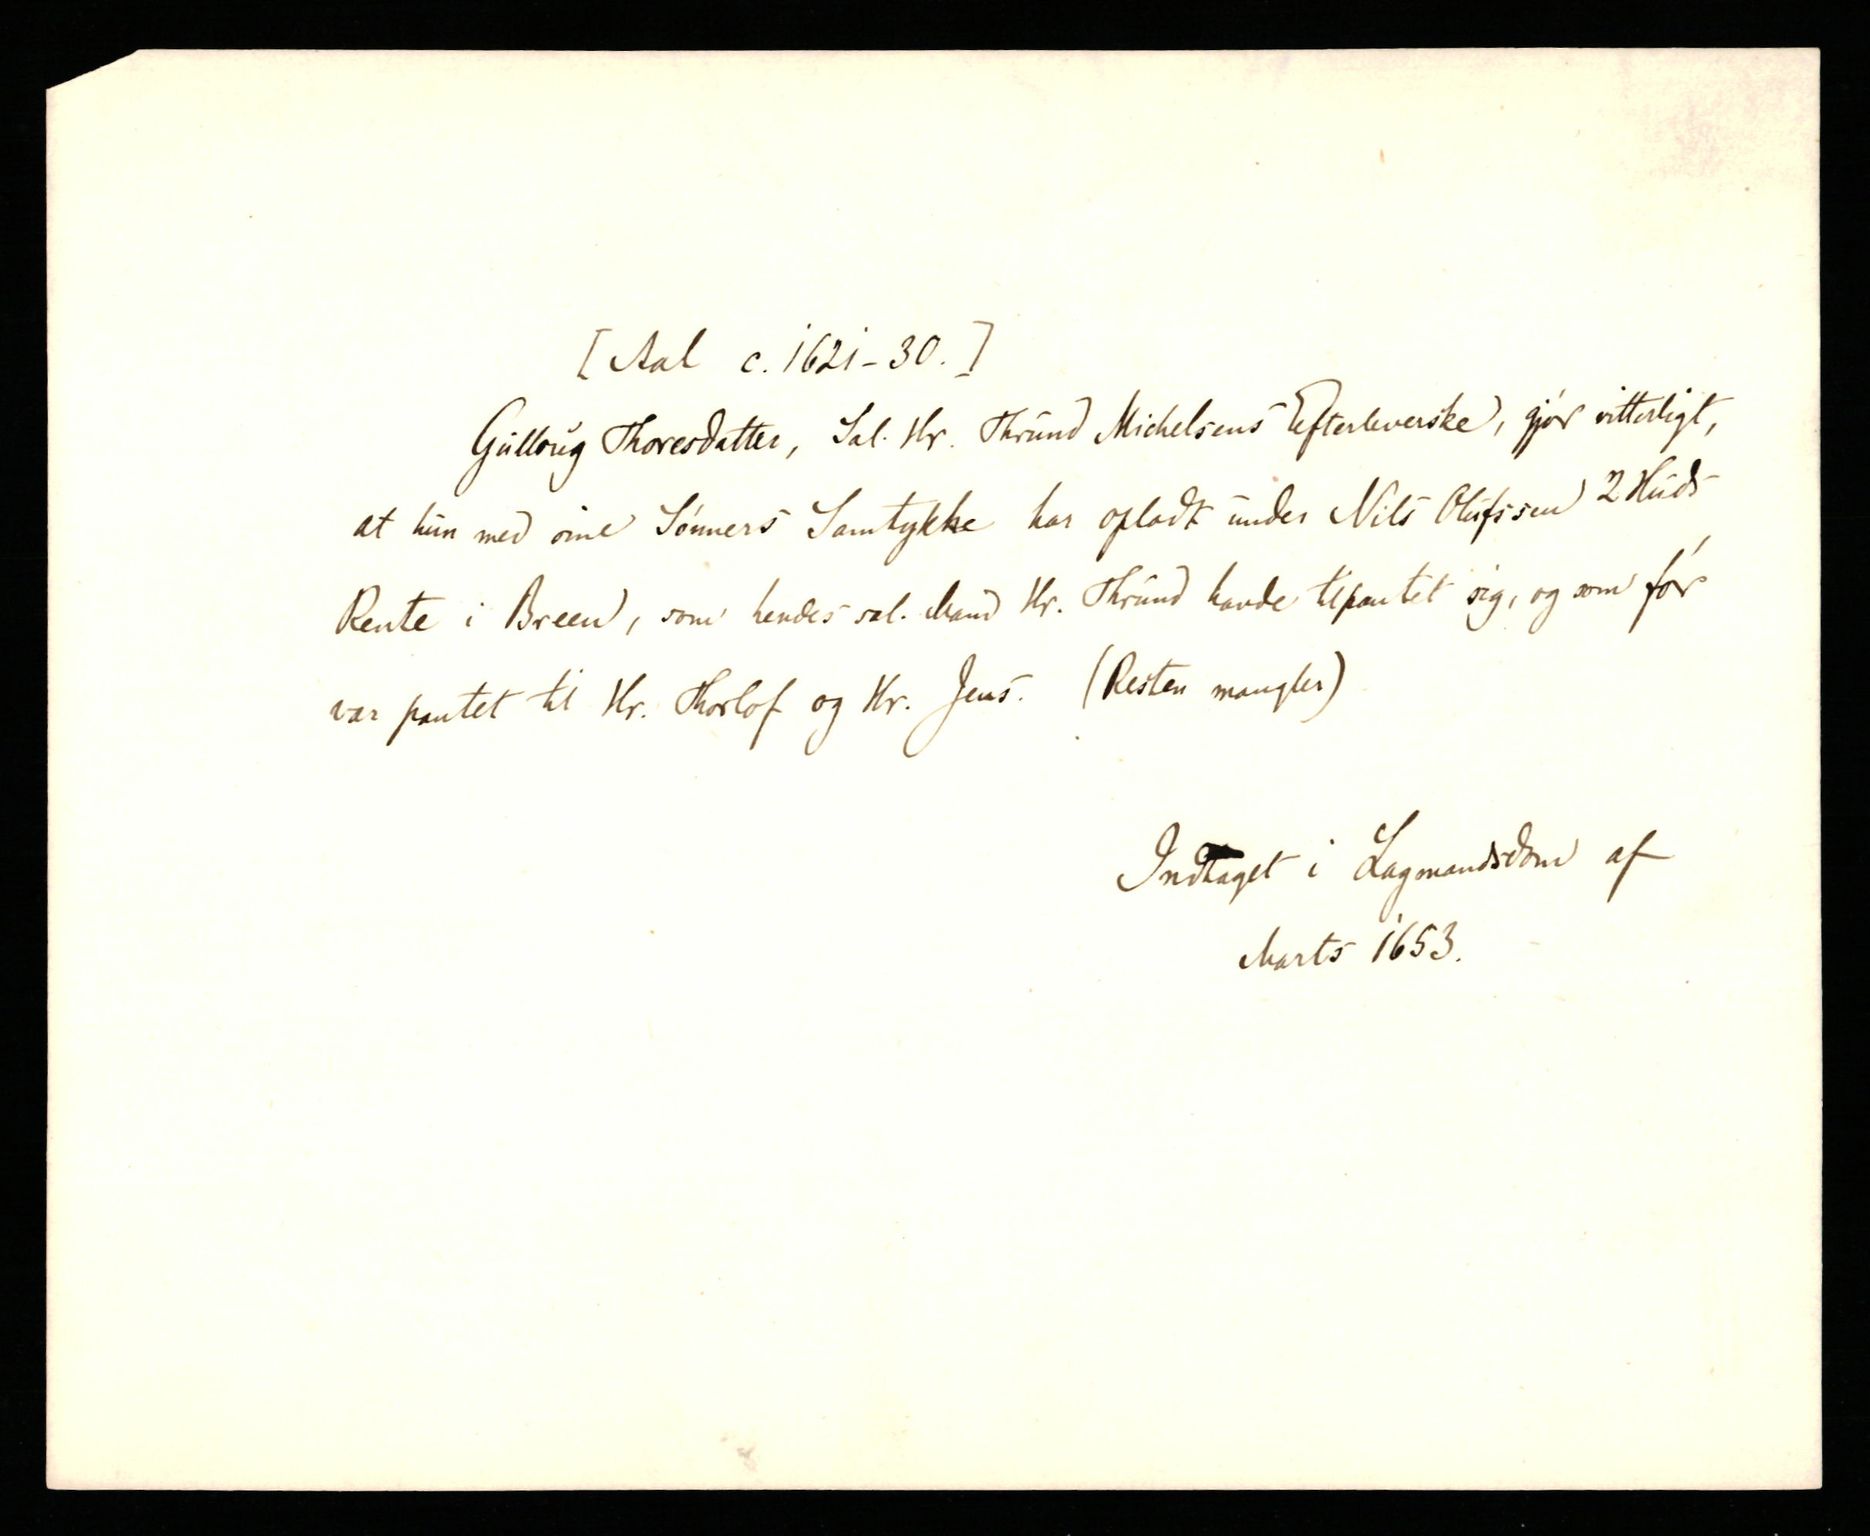 [Aal c. 1621-30.]
Gulloug Thoresdatter, Sal. Hr. Thrund Michelsens Efterleverske, gjør vitterligt,
at hun med sine Sønners Samtykke har opladt under Nils Olufssen 2 Huds
Rente i Breen, som hendes sal. Mand Hr. Thrund havde tilpantet sig, og som før
var pantet til Hr. Thorlof og Hr. Jens. (Resten mangler)
Indtaget i Lagmandsdom af
Marts 1653.